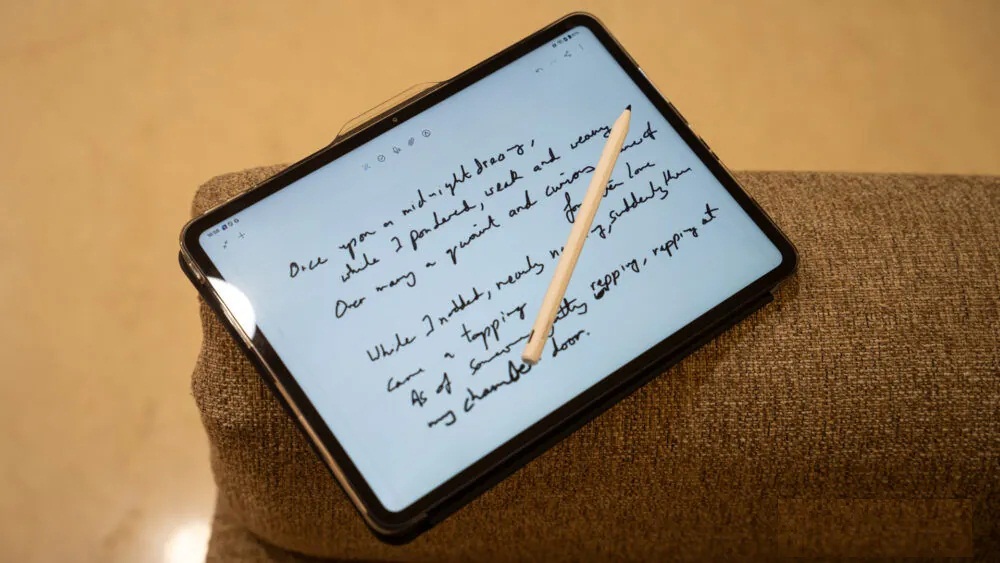 Once upon a midnight dreary,
while I pondered, weak and weary
Over many a quaint and curious of
forgotten lore
While I nodded, nearly suddenly then
came a tapping
As of someone rapping, rapping at
my chamber door.